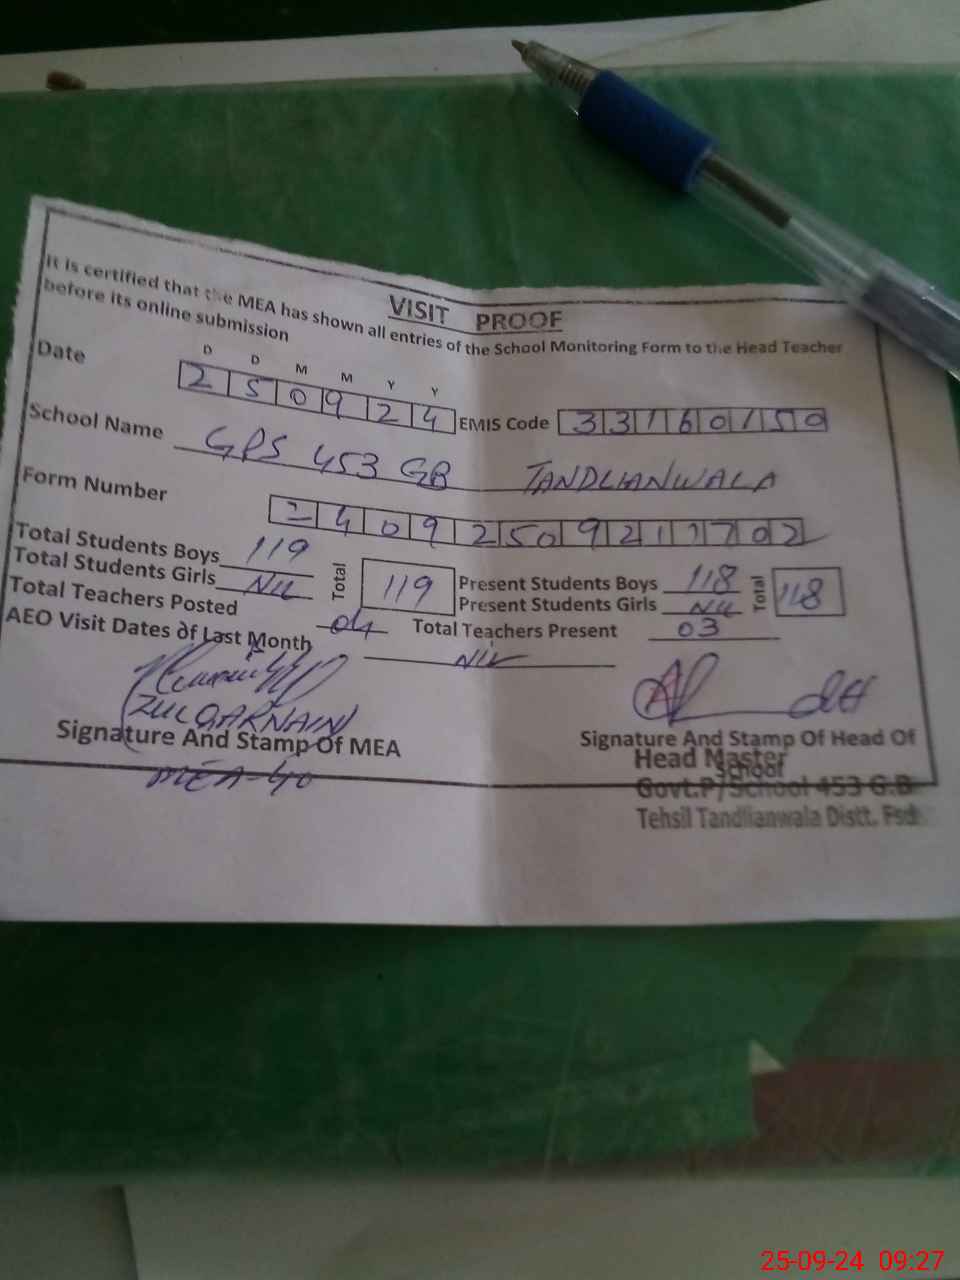 VISIT PROOF
It is certified that the MEA has shown all entries of the School Monitoring Form to the Head Teacher
before its online submission
D D M M Y Y
Date 2 5 0 9 2 4 EMIS Code 3 3 1 6 0 1 5 0
School Name GPS 453 GB TANDLIANWALA
Form Number 2 4 0 9 2 5 0 9 2 1 1 7 0 2
Total Students Boys 119 Total 119 Present Students Boys 118 Total 118
Total Students Girls Nil Present Students Girls Nil
Total Teachers Posted 04 Total Teachers Present 03
AEO Visit Dates of Last Month Nil
(ZULQARNAIN)
Signature And Stamp Of MEA
MEA-40
Signature And Stamp Of Head Of
School
Head Master
Govt.P/School 453 G.B
Tehsil Tandlianwala Distt. Fsd
25-09-24 09:27